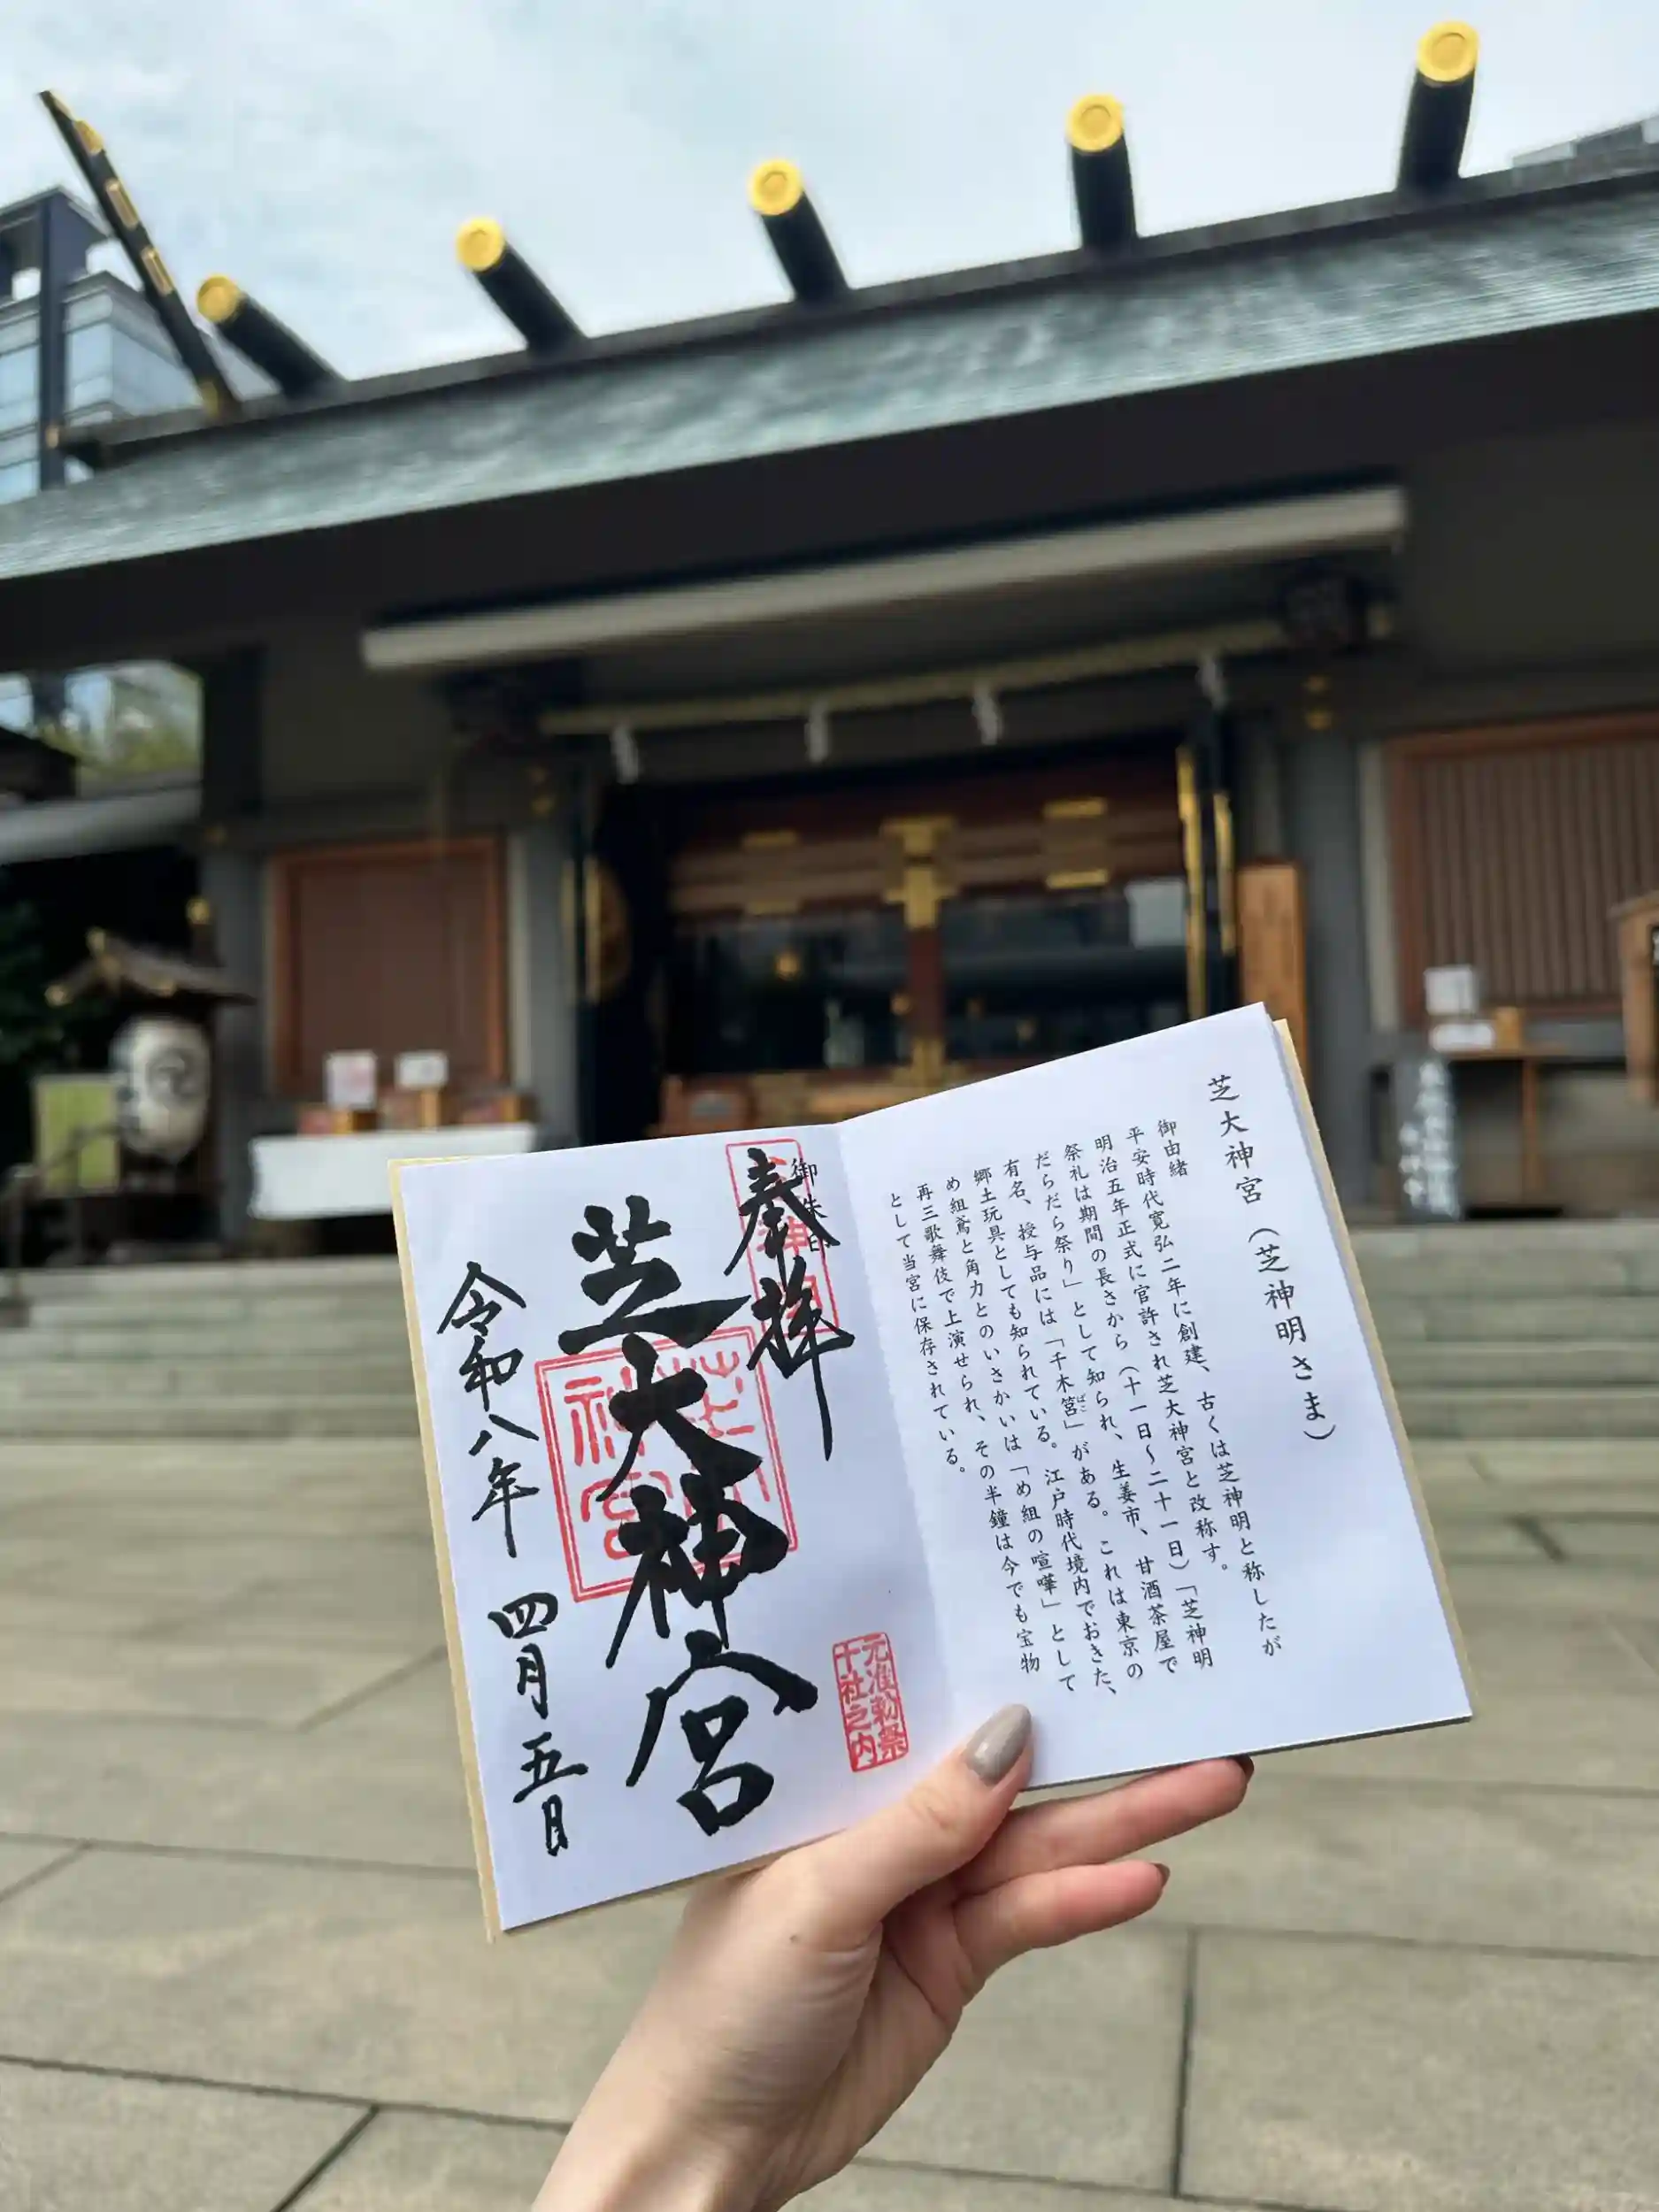 芝大神宮（芝神明さま）
御由緒
平安時代寛弘二年に創建、古くは芝神明と称したが
明治五年正式に官許され芝大神宮と改称す。
祭礼は期間の長さから（十一日～二十一日）「芝神明
だらだら祭り」として知られ、生姜市、甘酒茶屋で
有名、授与品には「千木筥」がある。これは東京の
郷土玩具としても知られている。江戸時代境内でおきた、
め組鳶と角力とのいさかいは「め組の喧嘩」として
再三歌舞伎で上演せられ、その半鐘は今でも宝物
として当宮に保存されている。
御朱印
奉拝
芝大神宮
令和八年 四月 五日
元准勅祭
十社之内